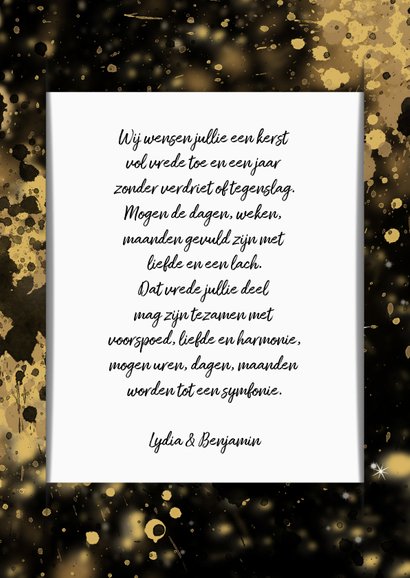 Wij wensen jullie een kerst
vol vrede toe en een jaar
zonder verdriet of tegenslag.
Mogen de dagen, weken,
maanden gevuld zijn met
liefde en een lach.
Dat vrede jullie deel
mag zijn tezamen met
voorspoed, liefde en harmonie,
mogen uren, dagen, maanden
worden tot een symfonie.
Lydia & Benjamin